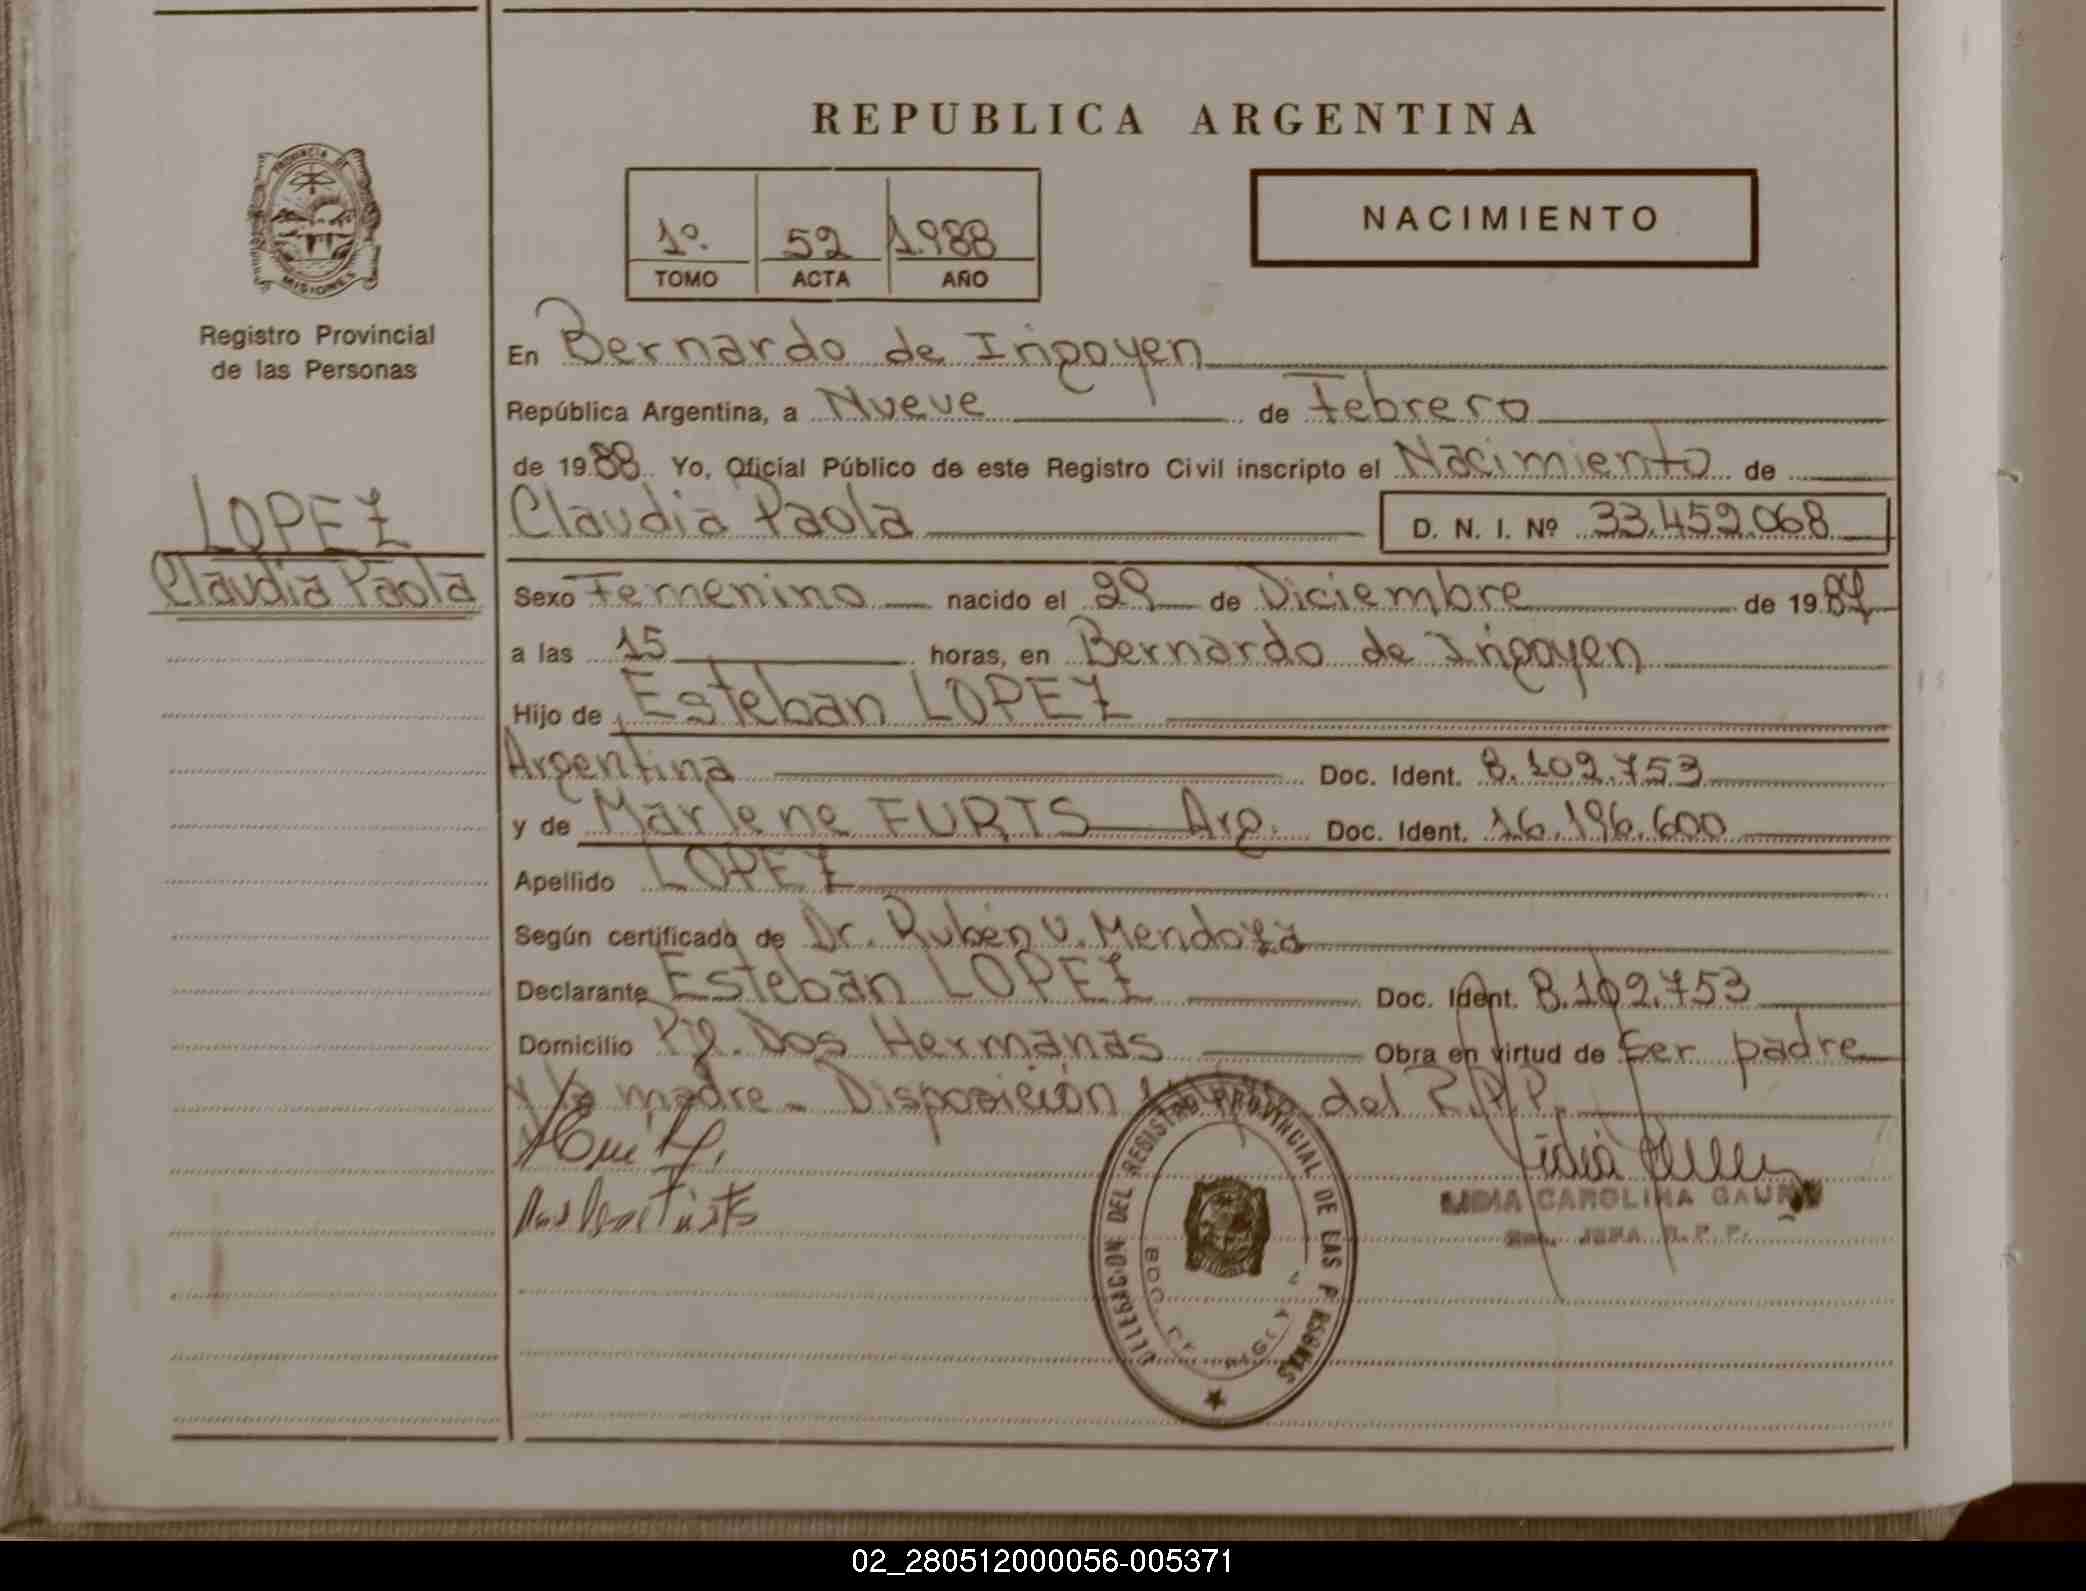 REPUBLICA ARGENTINA
PROVINCIA DE
MISIONES
1º. 52 1.988
TOMO ACTA AÑO
NACIMIENTO
Registro Provincial
de las Personas
LOPEZ
Claudia Paola
En Bernardo de Irigoyen
República Argentina, a Nueve de Febrero
de 1988 Yo, Oficial Público de este Registro Civil inscripto el Nacimiento de
Claudia Paola D. N. I. Nº 33.459.068
Sexo Femenino nacido el 29 de Diciembre de 1987
a las 15 horas, en Bernardo de Irigoyen
Hijo de Esteban LOPEZ
Argentina Doc. Ident. 8.109.753
y de Marlene FURTS Arg. Doc. Ident. 16.196.600
Apellido LOPEZ
Según certificado de Dr. Rubén V. Mendoza
Declarante Esteban LOPEZ Doc. Ident. 8.109.753
Domicilio Pje. Dos Hermanas Obra en virtud de Ser padre
y la madre - Disposición del R.P.P.
DELEGACION DEL REGISTRO PROVINCIAL DE LAS PERSONAS
LIDIA CAROLINA
JEFA R. P. P.
02_280512000056-005371